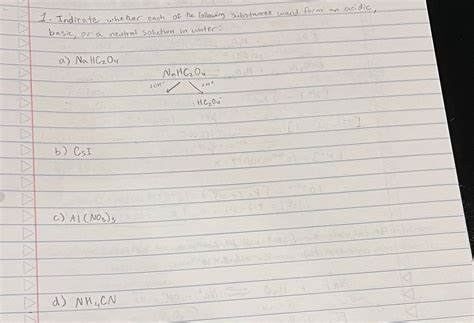 1. Indicate whether each of the following substances would form an acidic,
basic, or a neutral solution in water:
a) NaHC₂O₄
NaHC₂O₄
HC₂O₄⁻
b) CsI
c) Al(NO₃)₃
d) NH₄CN